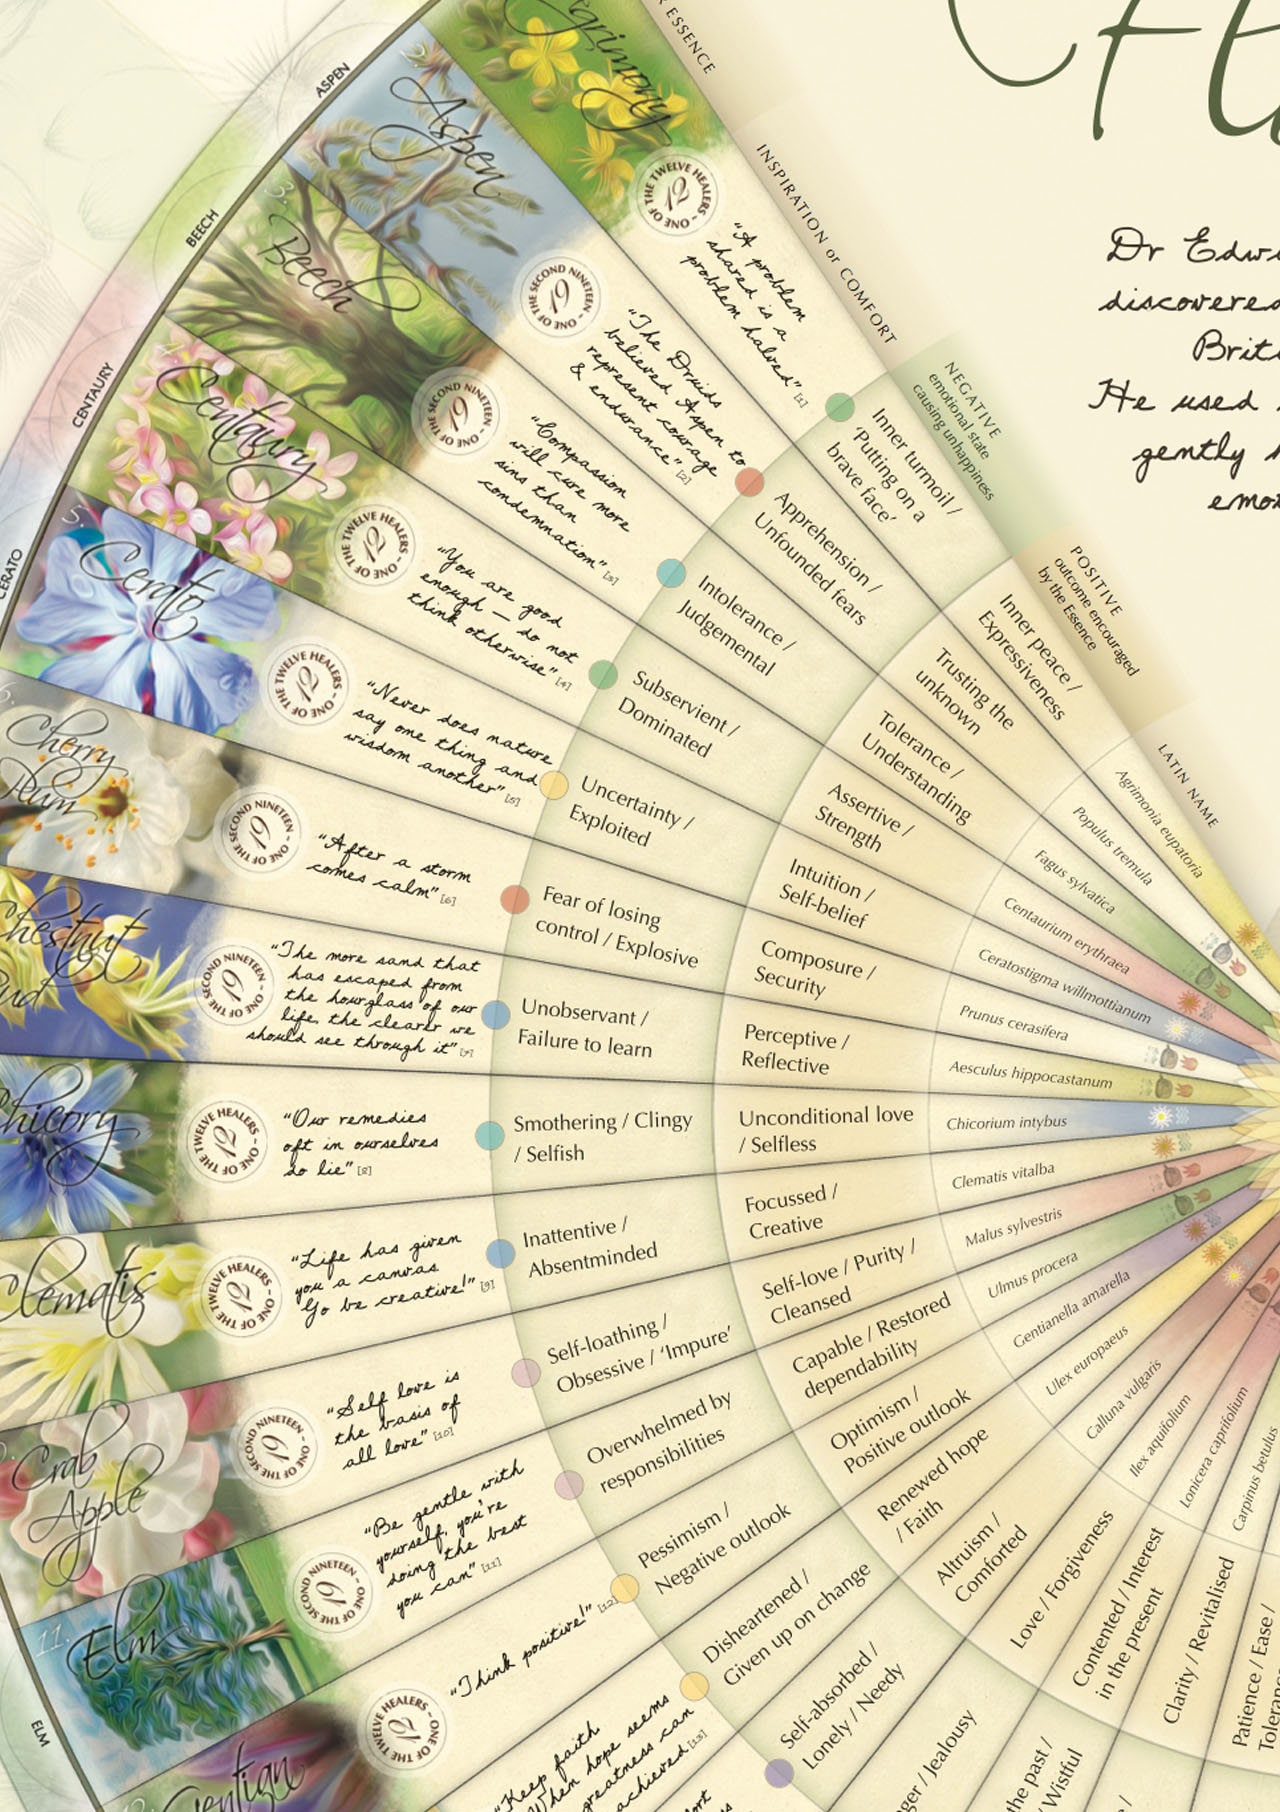 R ESSENCE
INSPIRATION or COMFORT
NEGATIVE
emotional state
causing unhappiness
POSITIVE
outcome encouraged
by the Essence
LATIN NAME
Dr Edw
discovered
Brit
He used
gently
emo
ASPEN
BEECH
CENTAURY
CERATO
ELM
Agrimony
ONE OF THE TWELVE HEALERS ~
12
"A problem
shared is a
problem halved" [1]
Inner turmoil /
'Putting on a
brave face'
Inner peace /
Expressiveness
Agrimonia eupatoria
2.
Aspen
ONE OF THE SECOND NINETEEN ~
19
"The Druids
believed Aspen to
represent courage
& endurance" [2]
Apprehension /
Unfounded fears
Trusting the
unknown
Populus tremula
3.
Beech
ONE OF THE SECOND NINETEEN ~
19
"Compassion
will cure more
sins than
condemnation" [3]
Intolerance /
Judgemental
Tolerance /
Understanding
Fagus sylvatica
4.
Centaury
ONE OF THE TWELVE HEALERS ~
12
"You are good
enough – do not
think otherwise" [4]
Subservient /
Dominated
Assertive /
Strength
Centaurium erythraea
5.
Cerato
ONE OF THE TWELVE HEALERS ~
12
"Never does nature
say one thing and
wisdom another" [5]
Uncertainty /
Exploited
Intuition /
Self-belief
Ceratostigma willmottianum
6.
Cherry
Plum
ONE OF THE SECOND NINETEEN ~
19
"After a storm
comes calm" [6]
Fear of losing
control / Explosive
Composure /
Security
Prunus cerasifera
Chestnut
Bud
ONE OF THE SECOND NINETEEN ~
19
"The more sand that
has escaped from
the hourglass of our
life, the clearer we
should see through it" [7]
Unobservant /
Failure to learn
Perceptive /
Reflective
Aesculus hippocastanum
Chicory
ONE OF THE TWELVE HEALERS ~
12
"Our remedies
oft in ourselves
do lie" [8]
Smothering / Clingy
/ Selfish
Unconditional love
/ Selfless
Chicorium intybus
Clematis
ONE OF THE TWELVE HEALERS ~
12
"Life has given
you a canvas
Go be creative!" [9]
Inattentive /
Absentminded
Focussed /
Creative
Clematis vitalba
Crab
Apple
ONE OF THE SECOND NINETEEN ~
19
"Self love is
the basis of
all love" [10]
Self-loathing /
Obsessive / 'Impure'
Self-love / Purity /
Cleansed
Malus sylvestris
11.
Elm
ONE OF THE SECOND NINETEEN ~
19
"Be gentle with
yourself, you're
doing the best
you can" [11]
Overwhelmed by
responsibilities
Capable / Restored
dependability
Ulmus procera
Gentian
ONE OF THE TWELVE HEALERS ~
12
"Think positive!" [12]
Pessimism /
Negative outlook
Optimism /
Positive outlook
Gentianella amarella
"Keep faith,
When hope seems
greatness can
achieved [13]
Disheartened /
Given up on change
Renewed hope
/ Faith
Ulex europaeus
Self-absorbed /
Lonely / Needy
Altruism /
Comforted
Calluna vulgaris
ger / Jealousy
Love / Forgiveness
Ilex aquifolium
the past /
/ Wistful
Contented / Interest
in the present
Lonicera caprifolium
Clarity / Revitalised
Carpinus betulus
Patience / Ease /
Toleran